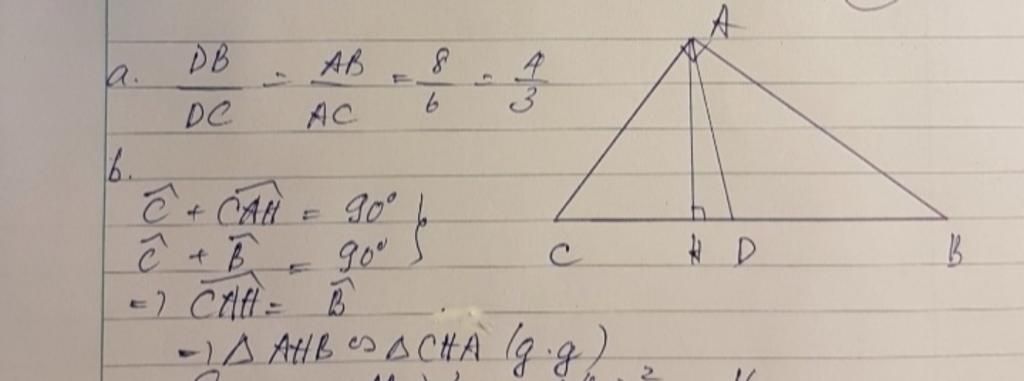 a. DB/DC = AB/AC = 8/6 = 4/3
A
b.
Ĉ + CAĤ = 90°
Ĉ + B̂ = 90° }
=> CAĤ = B̂
=> △ AHB ∽ △ CHA (g.g)
C H D B